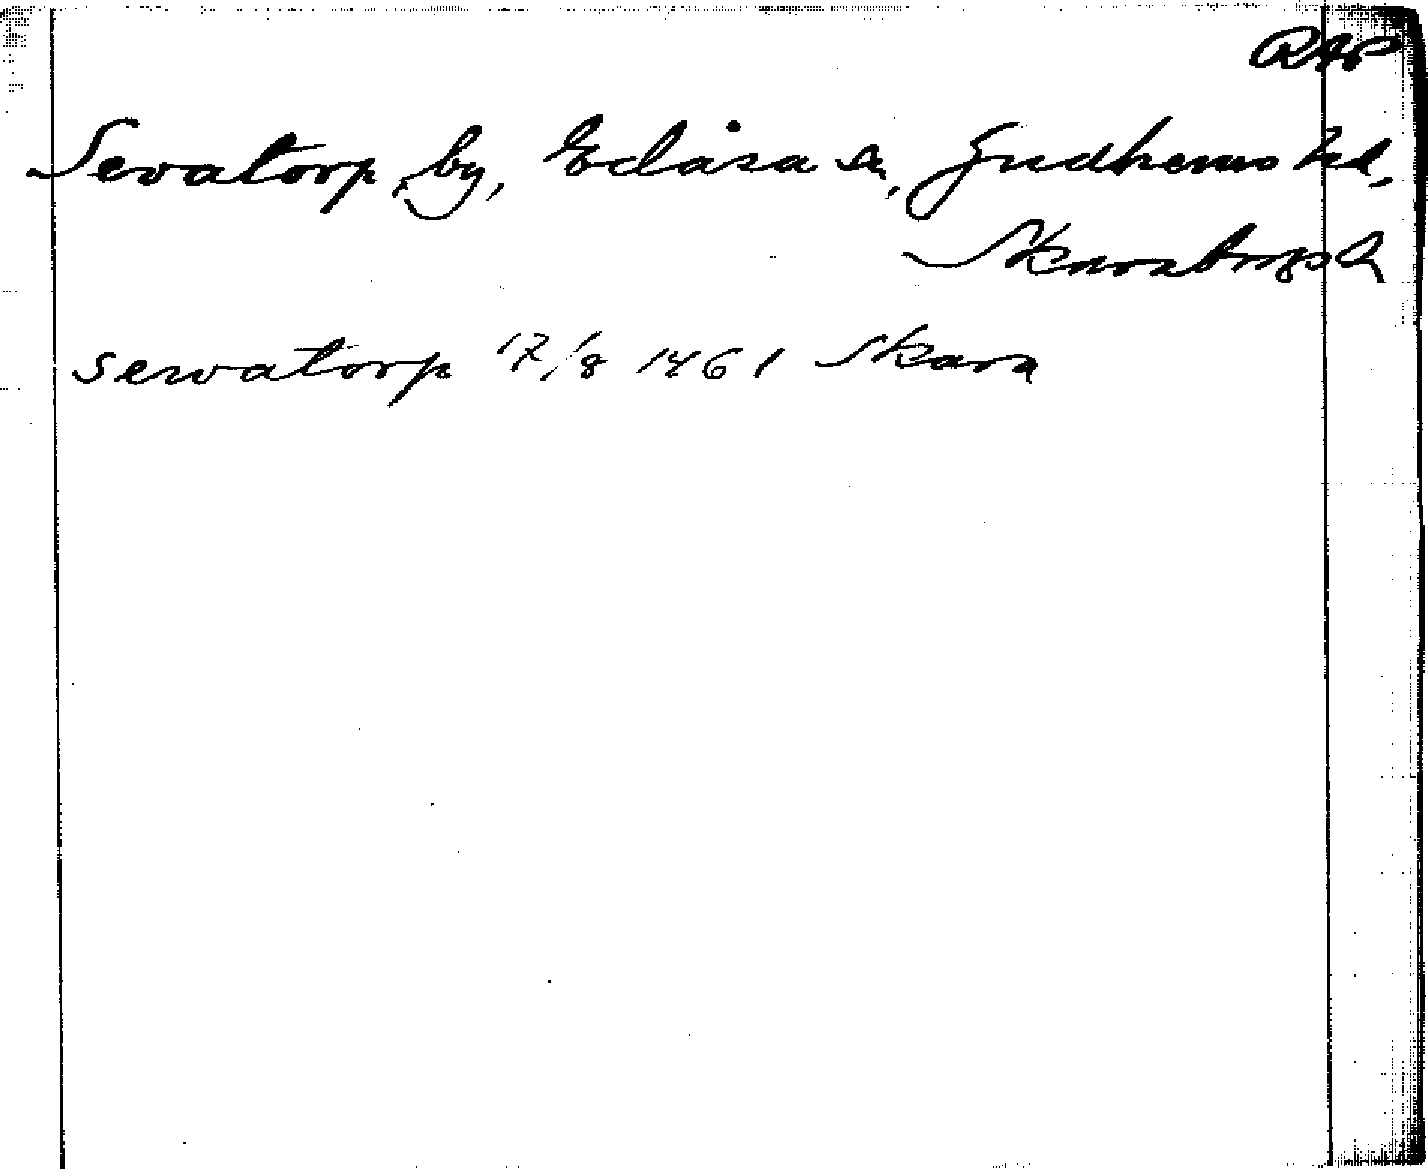 RAP
Sevatorp, by, Edåsa sn, Gudhems hd,
Skaraborgs l.
sewatorp 17/8 1461 Skara